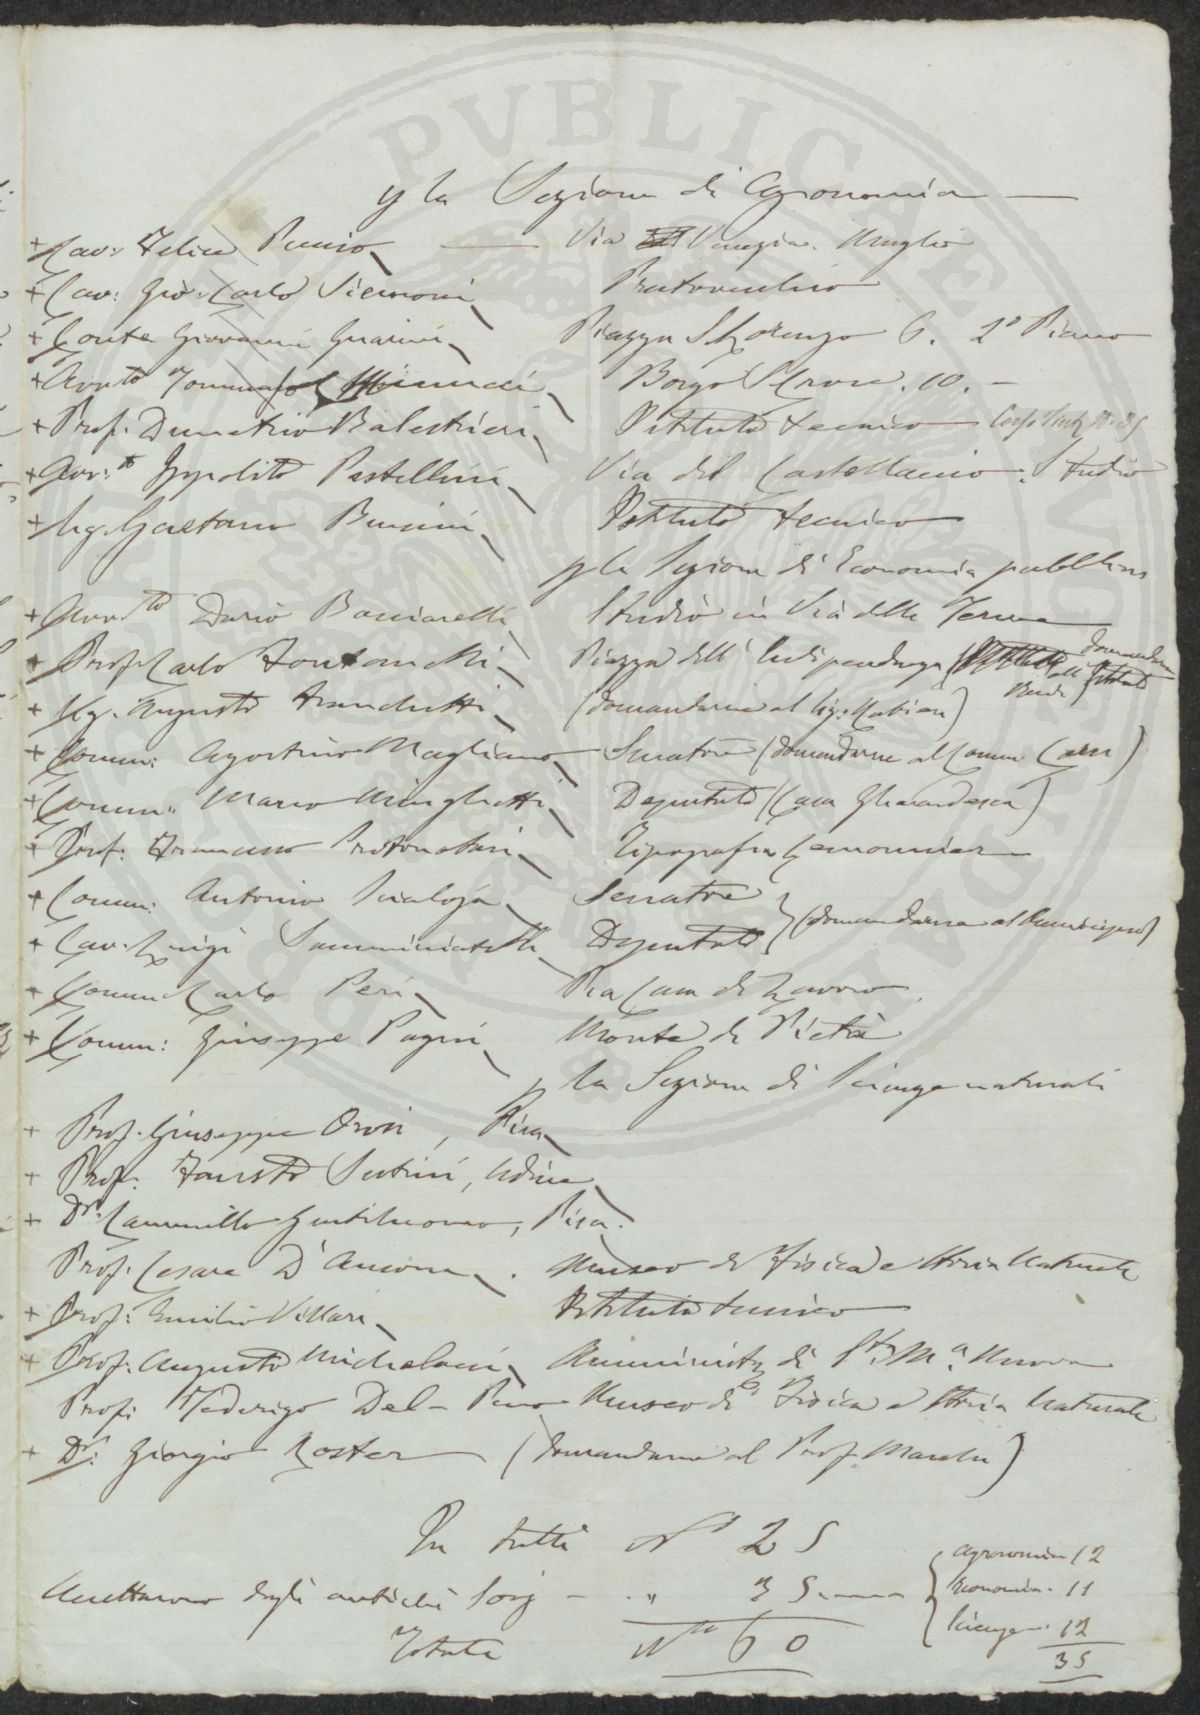 PVBLICAE
p la Sezione di Agronomia
+ Cav: Felice Via Venezia. Meglio
+ Cav: Gio: Carlo Siemoni Pratovecchio
+ Conte Giovanni Guarini Piazza S. Lorenzo 6. 2° Piano
+ Avv.to Tommaso Borgo S. Croce. 10. –
+ Prof. Demetrio Balestrieri Istituto tecnico
+ Avv.to Ippolito Pestellini Via del Castellaccio. Studio
+ Sig. Gaetano Istituto tecnico
p la Sezione di Economia pubblica
+ Avv.to Dario Studio in Via delle Terme
+ Prof. Carlo Fontanelli Piazza dell'Indipendenza
domandarne all'Istituto
+ Sig. Augusto Franchetti (domandarne al Sig.
+ Comm: Agostino Magliani Senatore (domandarne al Comm
+ Comm: Marco Minghetti Deputato (Casa Gherardesca)
+ Prof: Francesco Protonotari Tipografia Lemonnier
+ Comm: Antonio Scialoja Senatore
+ Cav. Luigi Sanminiatelli Deputato (domandarne al Municipio)
+ Comm. Carlo Peri Pia Casa di Lavoro
+ Comm: Giuseppe Monte di Pietà
p la Sezione di Scienze naturali
+ Prof. Giuseppe Orosi, Pisa
+ Prof. Fausto Sestini, Udine
+ Dr. Cammillo Gentiluomo, Pisa.
Prof. Cesare D'Ancona. Museo di Fisica e Storia Naturale
+ Prof: Emilio Villari Istituto tecnico
+ Prof. Augusto Michelacci di S.ta M.a Nuova
Prof: Federigo Del-Pino Museo di Fisica e Storia Naturale
+ Dr: Giorgio Roster (domandarne al Prof.
In tutti N° 25
degli antichi Socj – " 35
Agronomia 12
Economia. 11
Scienze. 12
35
Totale N° 60